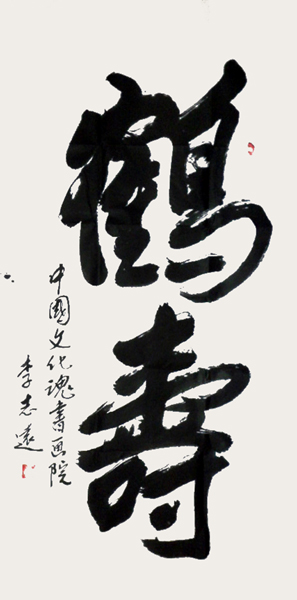 鶴壽
中國文化魂書画院
李志遠